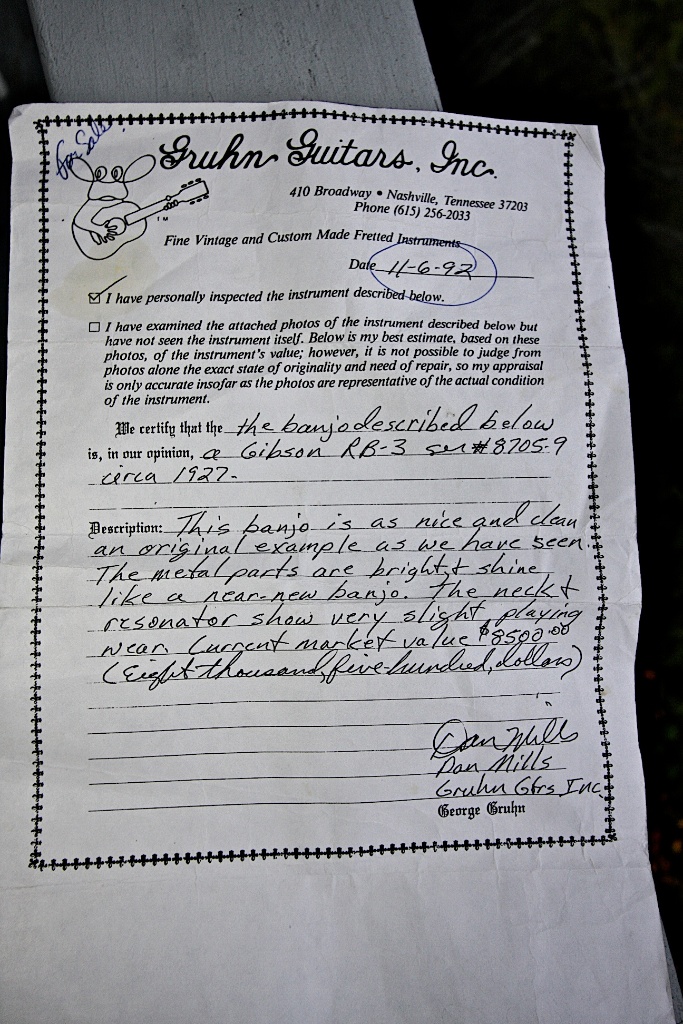 For Sale!
Gruhn Guitars, Inc.
410 Broadway • Nashville, Tennessee 37203
Phone (615) 256-2033
TM
Fine Vintage and Custom Made Fretted Instruments
Date 11-6-92
I have personally inspected the instrument described below.
I have examined the attached photos of the instrument described below but
have not seen the instrument itself. Below is my best estimate, based on these
photos, of the instrument's value; however, it is not possible to judge from
photos alone the exact state of originality and need of repair, so my appraisal
is only accurate insofar as the photos are representative of the actual condition
of the instrument.
We certify that the the banjo described below
is, in our opinion, a Gibson RB-3 ser # 8705-9
circa 1927.
Description: This banjo is as nice and clean
an original example as we have seen.
The metal parts are bright & shine
like a near-new banjo. The neck &
resonator show very slight playing
wear. Current market value $8500.00
(Eight thousand, five-hundred, dollars)
Dan Mills
Dan Mills
Gruhn Gtrs, Inc.
George Gruhn